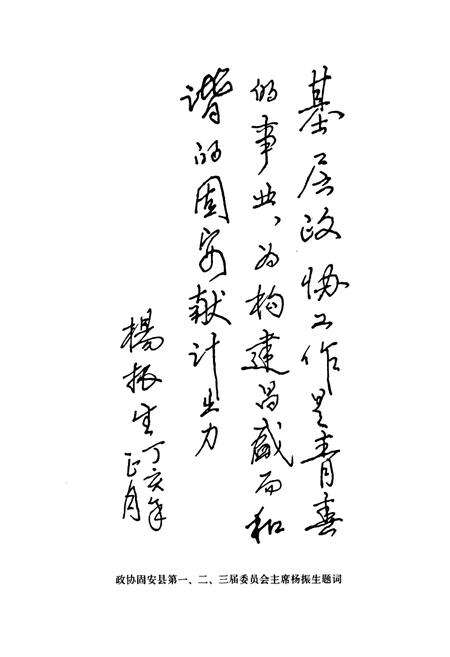 基层政协工作是青春
的事业、为构建昌盛而和
谐的固安献计出力
楊振生丁亥年
正月
政协固安县第一、二、三届委员会主席杨振生题词